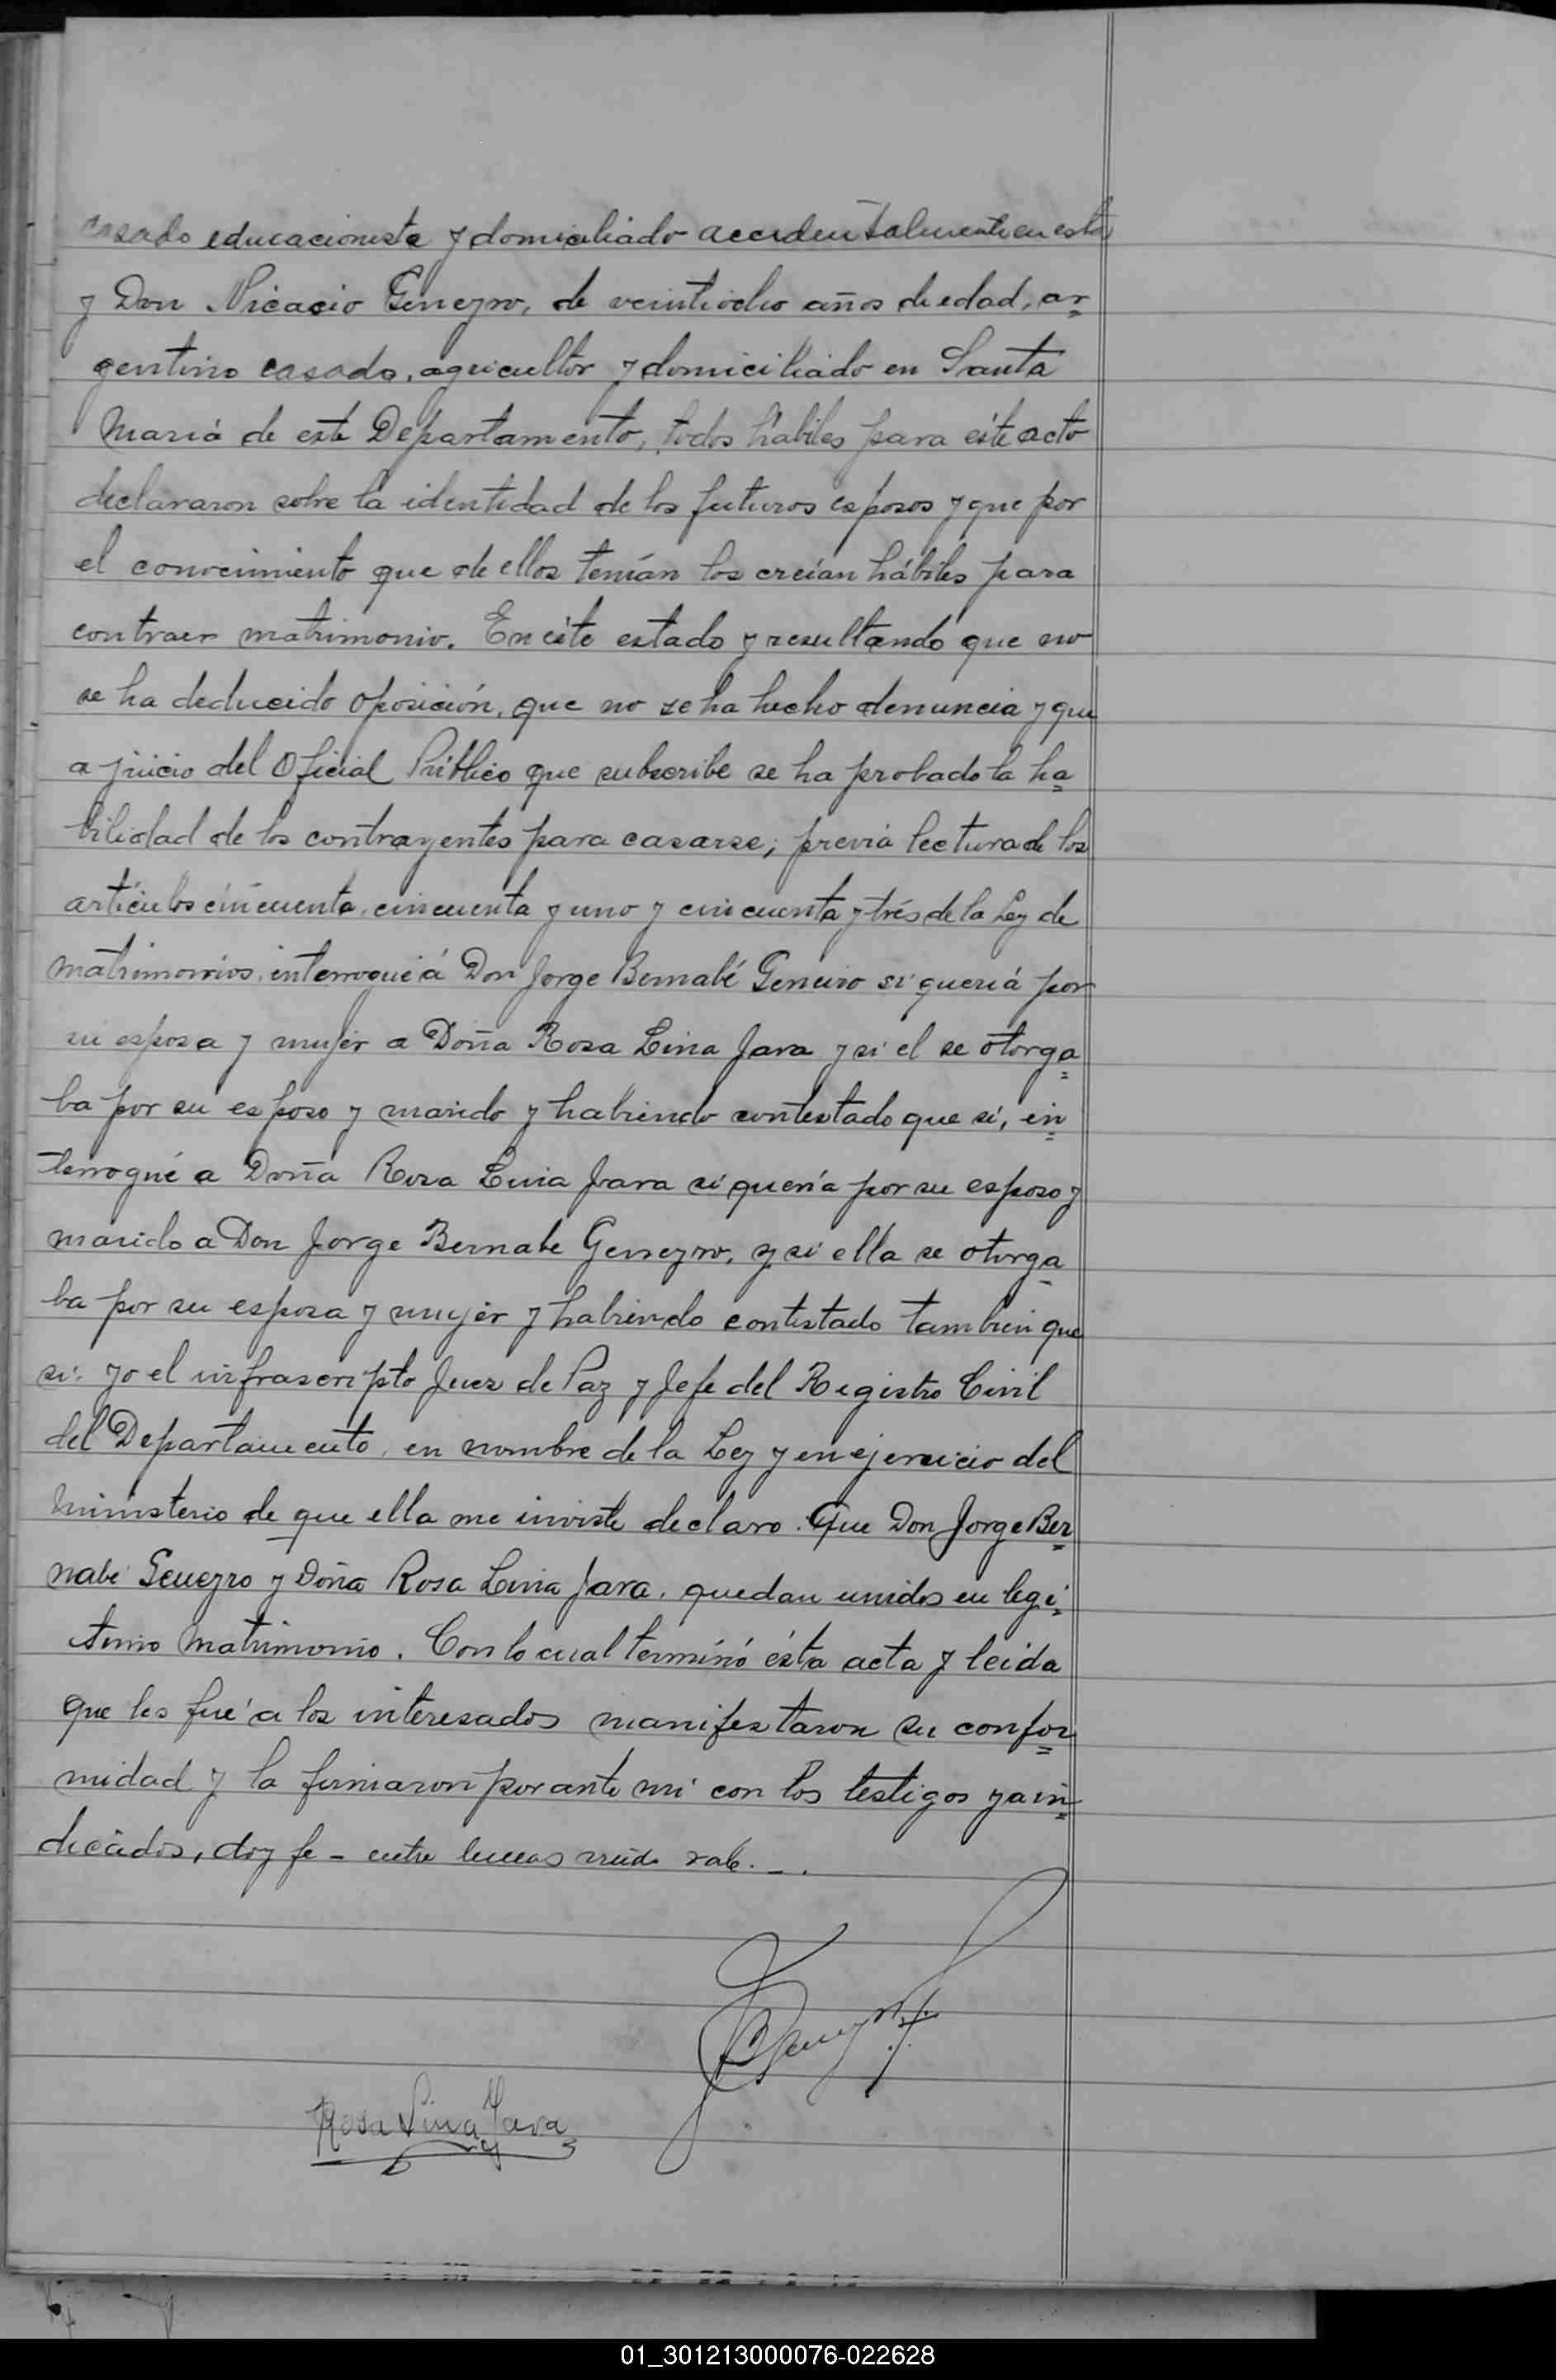 casado educacionista y domiciliado accidentalmente en esta
y Don Nicacio Geneyro, de veintiocho años de edad, ar=
gentino casado, agricultor y domiciliado en Santa
María de este Departamento, todos hábiles para éste acto
declararon sobre la identidad de los futuros esposos y que por
el conocimiento que de ellos tenían los creían hábiles para
contraer matrimonio. En éste estado y resultando que no
se ha deducido oposición, que no se ha hecho denuncia y que
a juicio del Oficial Público que subscribe se ha probado la ha=
bilidad de los contrayentes para casarse; previa lectura de los
artículos cincuenta, cincuenta y uno y cincuenta y trés de la Ley de
matrimonios, interrogué á Don Jorge Bernabé Geneiro si quería por
su esposa y mujer a Doña Rosa Lina Jara y si el se otorga=
ba por su esposo y marido y habiendo contestado que si, in=
terrogué a Doña Rosa Lina Jara si quería por su esposo y
marido a Don Jorge Bernabe Geneyro, y si ella se otorga-
ba por su esposa y mujer y habiendo contestado tambien que
si: yo el infrascripto Juez de Paz y Jefe del Registro Civil
del Departamento, en nombre de la Ley y en ejercicio del
Ministerio de que ella me inviste declaro. Que Don Jorge Ber=
nabé Geneyro y Doña Rosa Lina Jara, quedan unidos en legí=
timo Matrimonio. Con lo cual terminó ésta acta y leida
que les fué a los interesados manifestaron su confor=
midad y la firmaron por ante mí con los testigos ya in=
dicados, doy fe - entre lineas vale. - .
Rosa Lina Jara
01_301213000076-022628